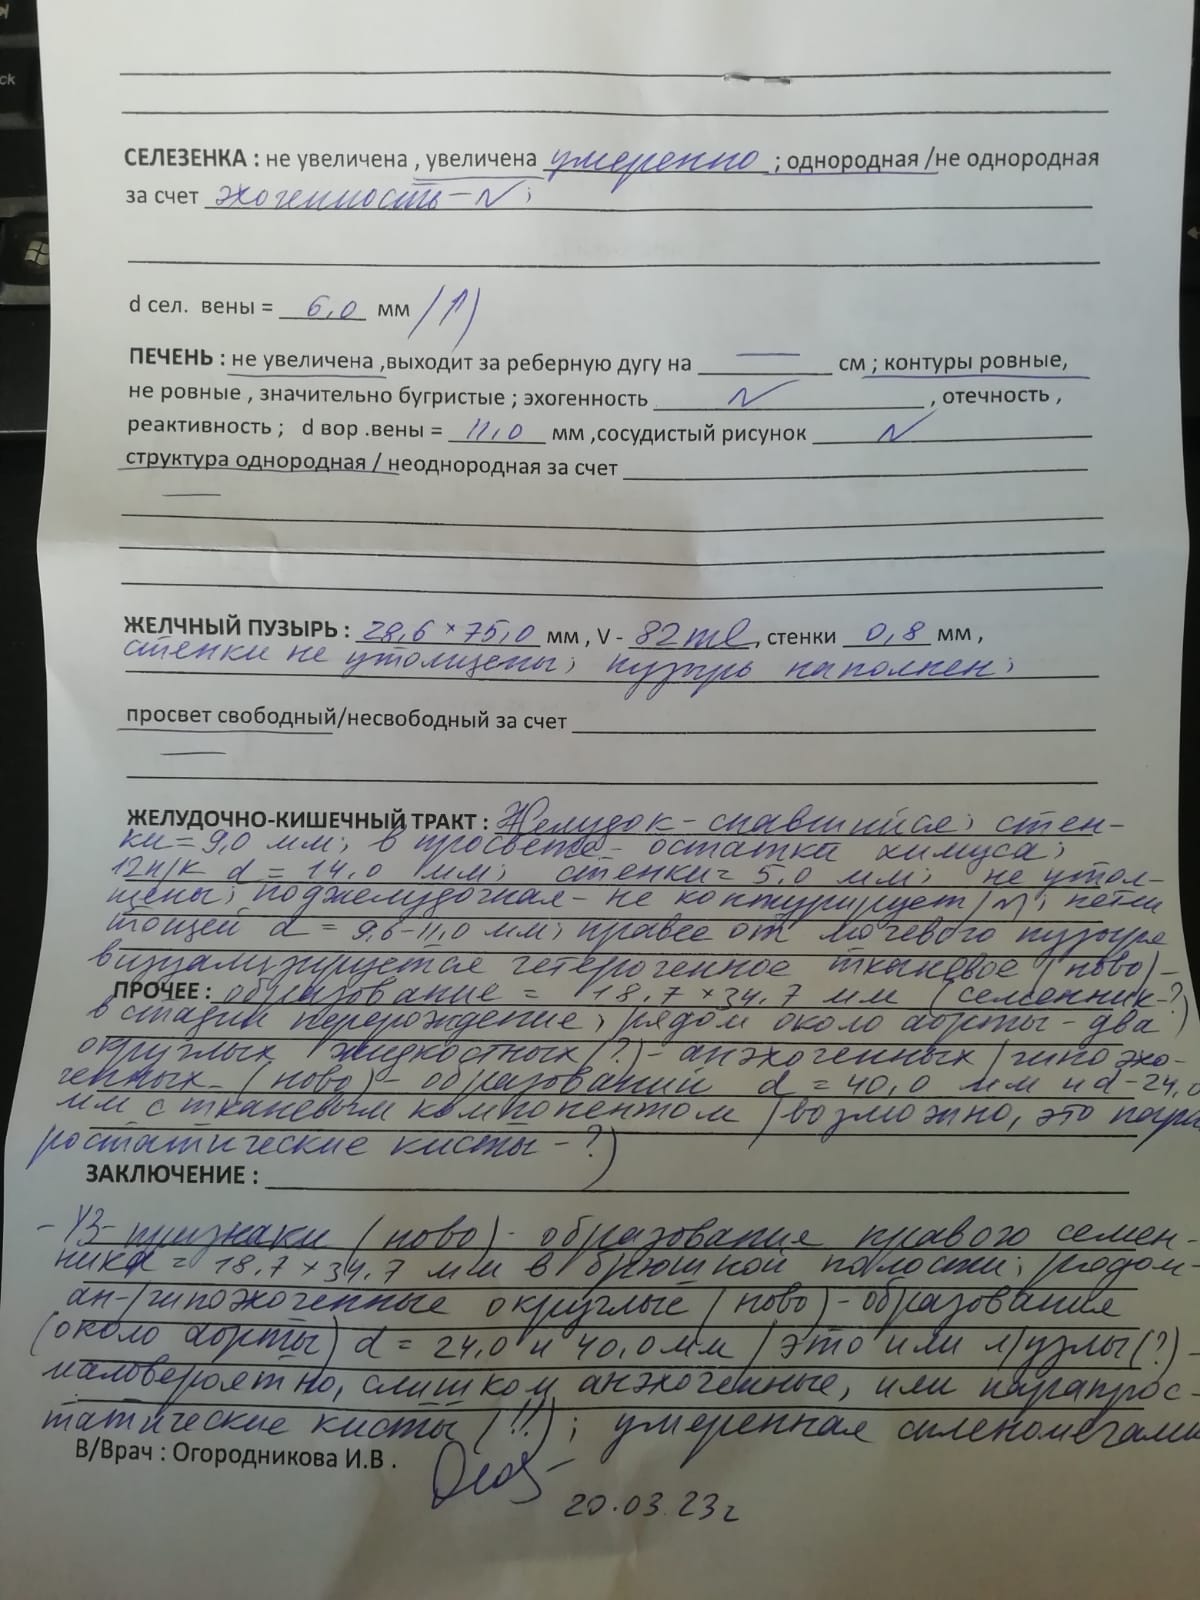 СЕЛЕЗЕНКА : не увеличена , увеличена умеренно ; однородная /не однородная
за счет эхогенность – N ;
d сел. вены = 6,0 мм (↑)
ПЕЧЕНЬ : не увеличена ,выходит за реберную дугу на — см ; контуры ровные,
не ровные , значительно бугристые ; эхогенность N , отечность ,
реактивность ; d вор .вены = 11,0 мм ,сосудистый рисунок N
структура однородная / неоднородная за счет
—
ЖЕЛЧНЫЙ ПУЗЫРЬ : 28,6 × 75,0 мм , V - 82 ml , стенки 0,8 мм ,
стенки не утолщены; пузырь наполнен;
просвет свободный/несвободный за счет
—
ЖЕЛУДОЧНО-КИШЕЧНЫЙ ТРАКТ : Желудок – спавшийся; стен-
ки = 9,0 мм; в просвете – остатки химуса;
12п/к d = 14,0 мм; стенки = 5,0 мм; не утол-
щены; поджелудочная – не контурирует (N); петли
тощей d = 9,6-11,0 мм; правее от мочевого пузыря
визуализируется гетерогенное тканевое (ново)-
ПРОЧЕЕ : образование = 18,7 × 34,7 мм (семенник-?)
в стадии перерождение; рядом около аорты – два
округлых жидкостных (?) – анэхогенных /гипоэхо-
генных – (ново) – образований d = 40,0 мм и d – 24,0
мм с тканевым компонентом (возможно, это пара
ростатические кисты – ?)
ЗАКЛЮЧЕНИЕ :
- УЗ- признаки (ново)- образования правого семен-
ника = 18,7 × 34,7 мм в брюшной полости; рядом-
ан-/гипоэхогенные округлые (ново)- образования
(около аорты) d = 24,0 и 40,0 мм (это или л/узлы (?) –
маловероятно, слишком анэхогенные, или парапрос-
татические кисты (!!); умеренная спленомегалия
В/Врач : Огородникова И.В .
20.03.23 г